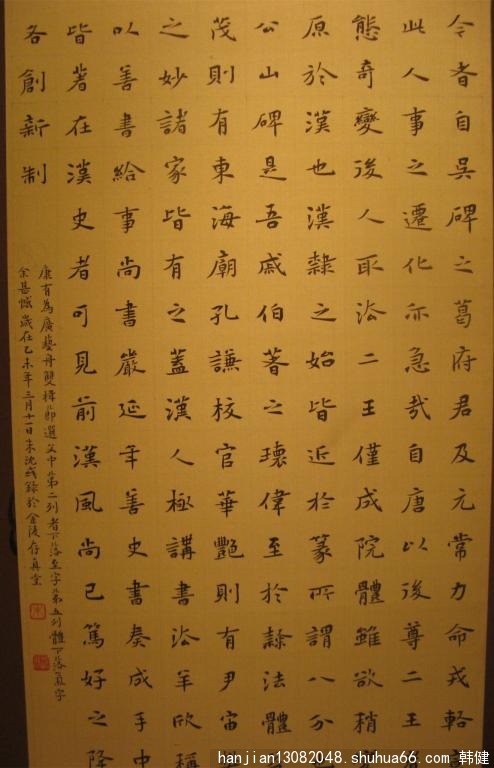 令者自吳碑之葛府君及元常力命戎輅
此人事之遷化亦急哉自唐以後尊二王
態奇變後人取法二王僅成院體雖欲稍
原於漢也漢隸之始皆近於篆所謂八分
公山碑是吾戚伯著之瓌偉至於隸法體
茂則有東海廟孔謙校官華艷則有尹宙
之妙諸家皆有之蓋漢人極講書法羊欣稱
以善書給事尚書嚴延年善史書奏成手中
皆著在漢史者可見前漢風尚已篤好之降
各創新制
康有為廣藝舟雙楫節選文中第二列者下落至字第五列體下落氣字
余甚憾歲在乙未年三月十一日朱沈錄於金陵存真堂
hanjian13082048.shuhua66.com 韩健